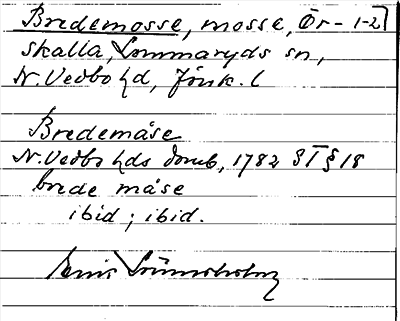 Bredemosse, mosse, Ör- 1-2]
skalla, Lommaryds sn,
N. Vedbo hd, Jönk. l
Bredemåse
N. Vedbo hds domb, 1782 § I § 18
brede måse
ibid; ibid.